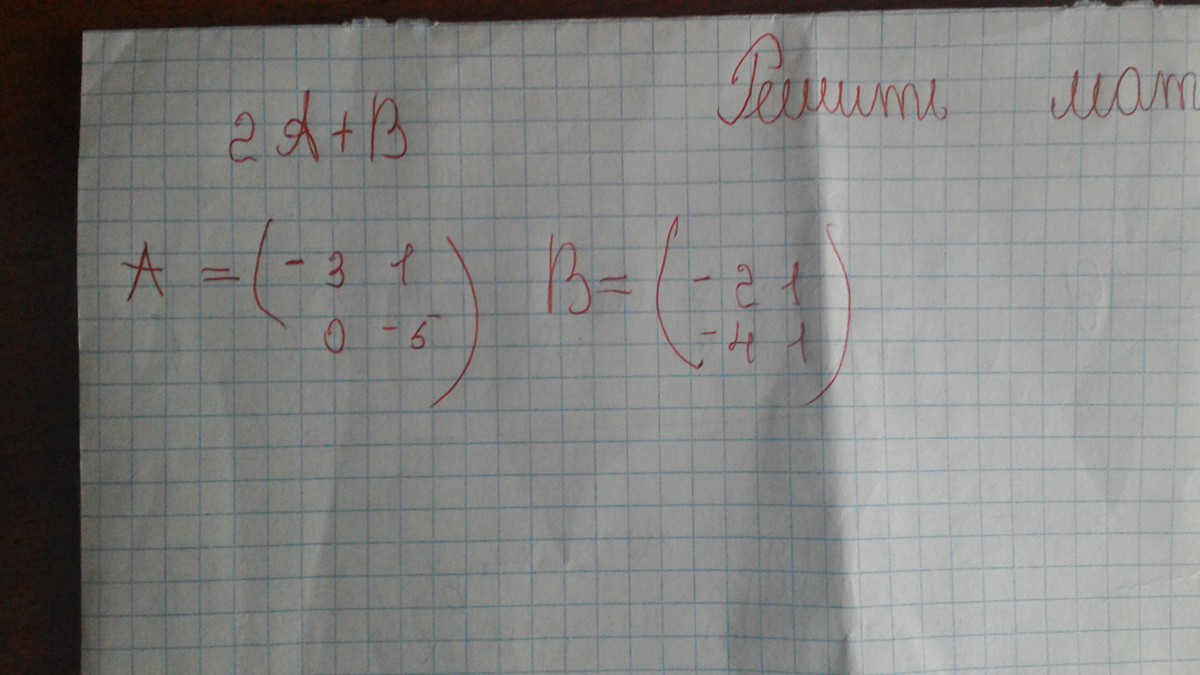 Решить мат
2A+B
A = (-3 1      B = (-2 1
0 -5)      -4 1)